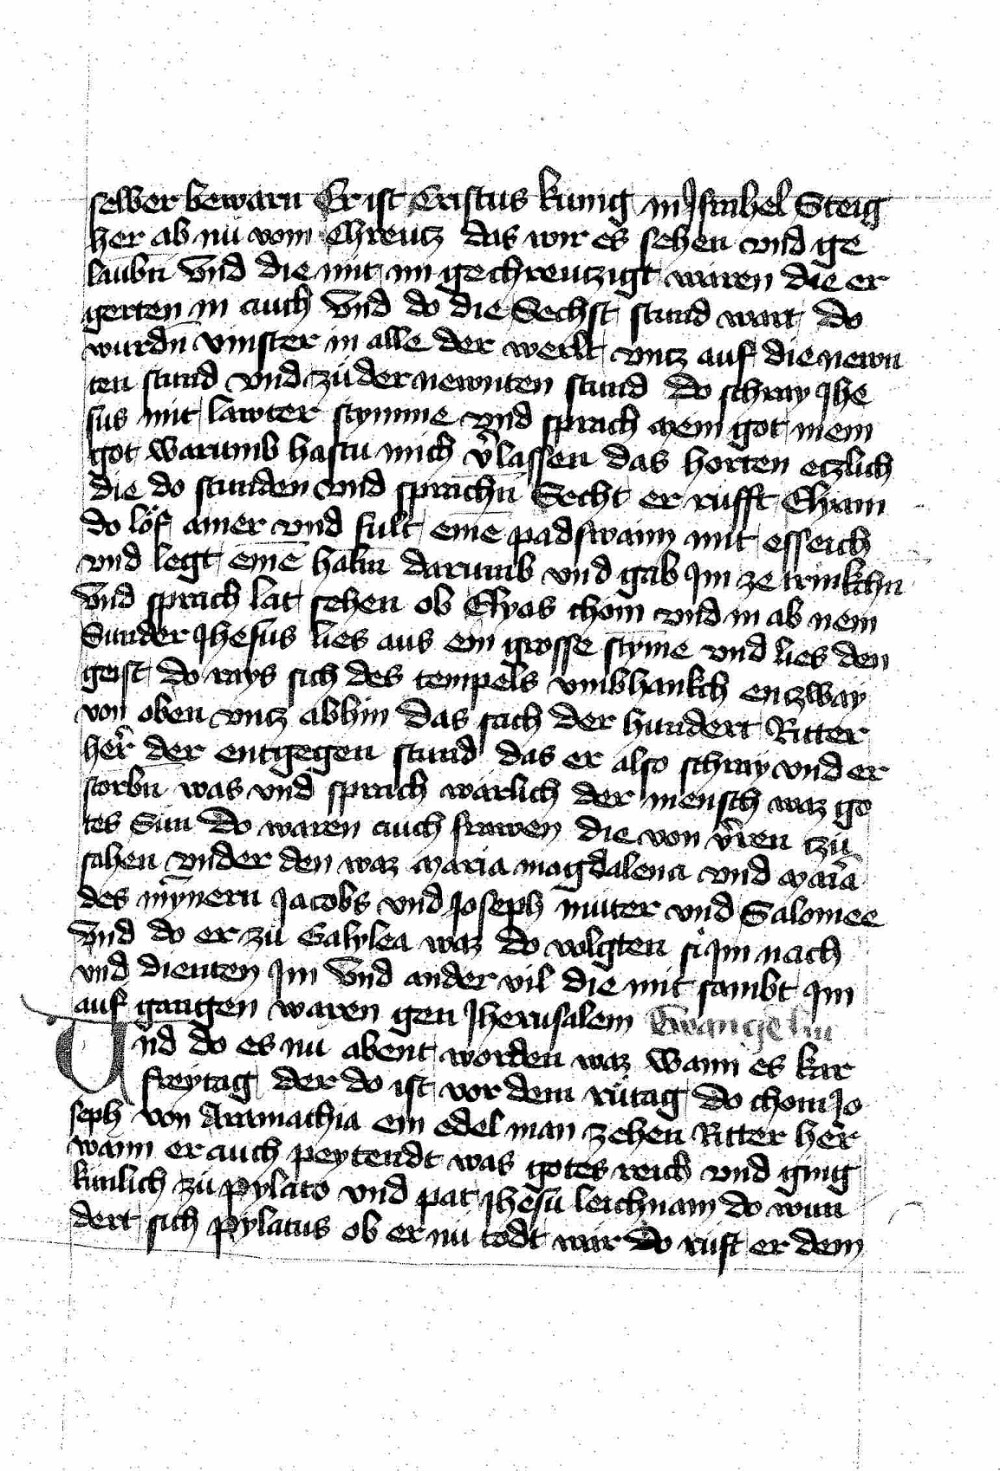 selber bewarn Er ist Cristus kunig in Jsrahel Steig
her ab nu vom Chreutz das wir es sehen vnd ge
laubn̄ Vnd die mit im gechreutzigt waren die er
gerten in auch Vnd do die Sechst stund wart do
wurdn̄ vinster in alle der werlt vntz auf die newn
ten stund vnd zu der newnten stund do schray Jhe
sus mit lawter stymme vnd sprach mein got mein
got warumb hastu mich v̉lassen das horten etzlich
die do stunden vnd sprachn̄ Secht er rufft Elyam
do lof ainer vnd fult eine̅ padswamm mit esseich
vnd legt eine̅ halm darumb vnd gab Jm ze trinkchn
Vnd sprach lat sehen ob Elyas chom vnd in ab nem
Sunder Jhesus lies aus ein grosse styme vnd lies den
geist do rays sich des tempels vmbhankch entzway
von oben vntz abhin das sach der hundert Ritter
her̉ der entgegen stund das er also schray vnd er
storbn̄ was vnd sprach warlich der mensch waz go
tes Sun do waren auch frawen die von v̉ren tzu
sahen vnder den waz maria magdalena vnd maria
des mynern Jacobs vnd Joseph muter vnd Salomee
Vnd do er zu Galylea waz do volgten si Jm nach
vnd dienten Jm Vnd ander vil die mit sambt Jm
auf gangen waren gen Jherusalem Ewangeliu
Vnd do es nu abent worden waz wann es kar
freytag der do ist vor dem rutag do chom Jo
seph von Aramathia ein edel man zehen Ritter her̉
wann er auch peytendt was gotes reich vnd ging
kunlich zu pylato vnd pat Jhesu leichnam do wun
dert sich pylatus ob er nu todt wär do ruft er dem